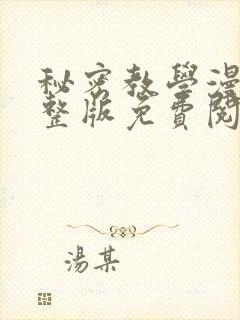 秘密教學漫
整版免費閱
湯某